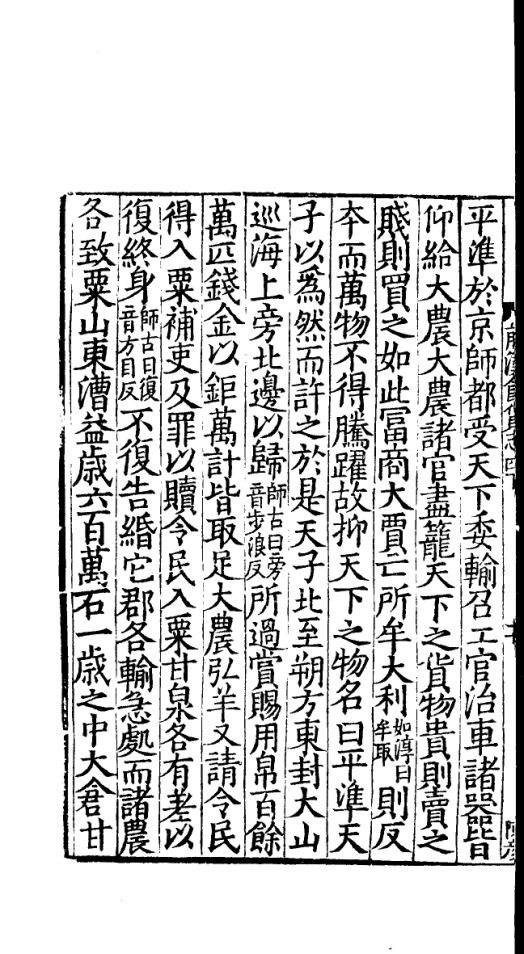 平準於京師都受天下委輸召工官治車諸器皆
仰給大農大農諸官盡籠天下之貨物貴則賣之
賤則買之如此富商大賈亡所牟大利如淳曰牟取則反
夲而萬物不得騰躍故抑天下之物名曰平準天
子以爲然而許之於是天子北至朔方東封大山
巡海上旁北邊以歸師古曰旁音步浪反所過賞賜用帛百餘
萬匹錢金以鉅萬計皆取足大農弘羊又請令民
得入粟補吏及罪以贖令民入粟甘泉各有差以
復終身師古曰復音方目反不復告緡它郡各輸急處而諸農
各致粟山東漕益歳六百萬石一歳之中大倉甘